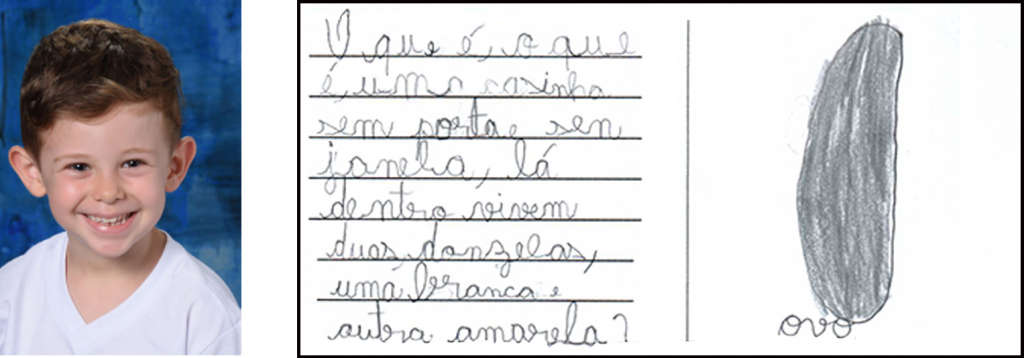 O que é, o que
é, uma casinha
sem porta e sen
janela, lá
dentro vivem
duas donzelas,
uma branca e
outra amarela?
ovo